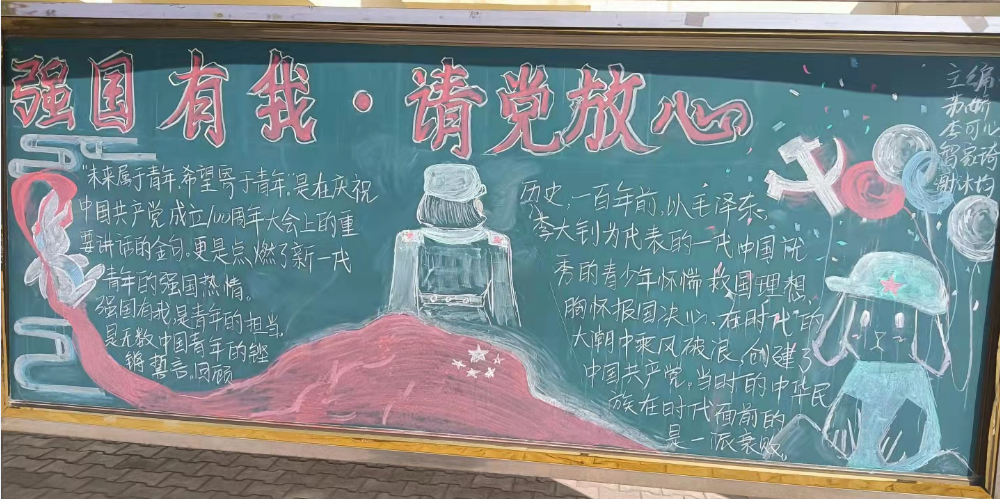 强国有我·请党放心
"未来属于青年,希望寄于青年",是在庆祝
中国共产党成立100周年大会上的重
要讲话的金句。更是点燃了新一代
青年的强国热情。
强国有我是青年的担当,
是无数中国青年的铿
锵誓言。回顾
历史,一百年前,以毛泽东、
李大钊为代表的一代中国优
秀的青少年怀惴救国理想,
胸怀报国决心,在时代的
大潮中乘风破浪,创建了
中国共产党。当时的中华民
族在时代面前的
是一派衰败。
主编
李可心
100